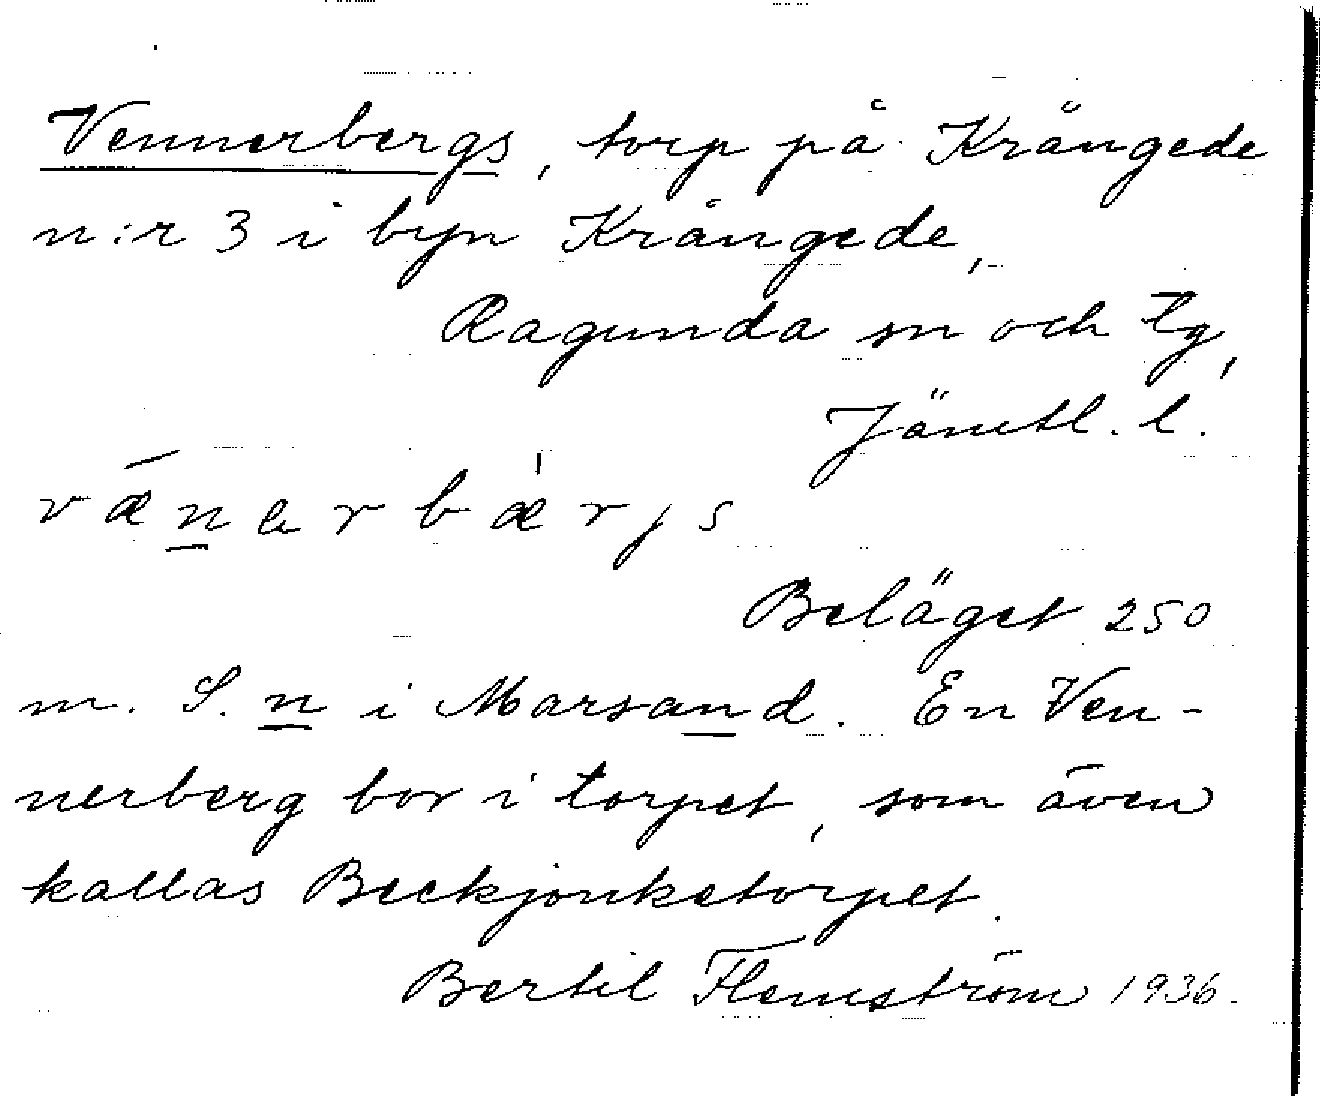 Vennerbergs, torp på Krångede
n:r 3 i byn Krångede,
Ragunda sn och tg,
Jämtl. l.
vǣnerbæ̍rjs
Beläget 250
m. S. n i Marsand. En Ven-
nerberg bor i torpet, som även
kallas Beckjonketorpet.
Bertil Flemström 1936.